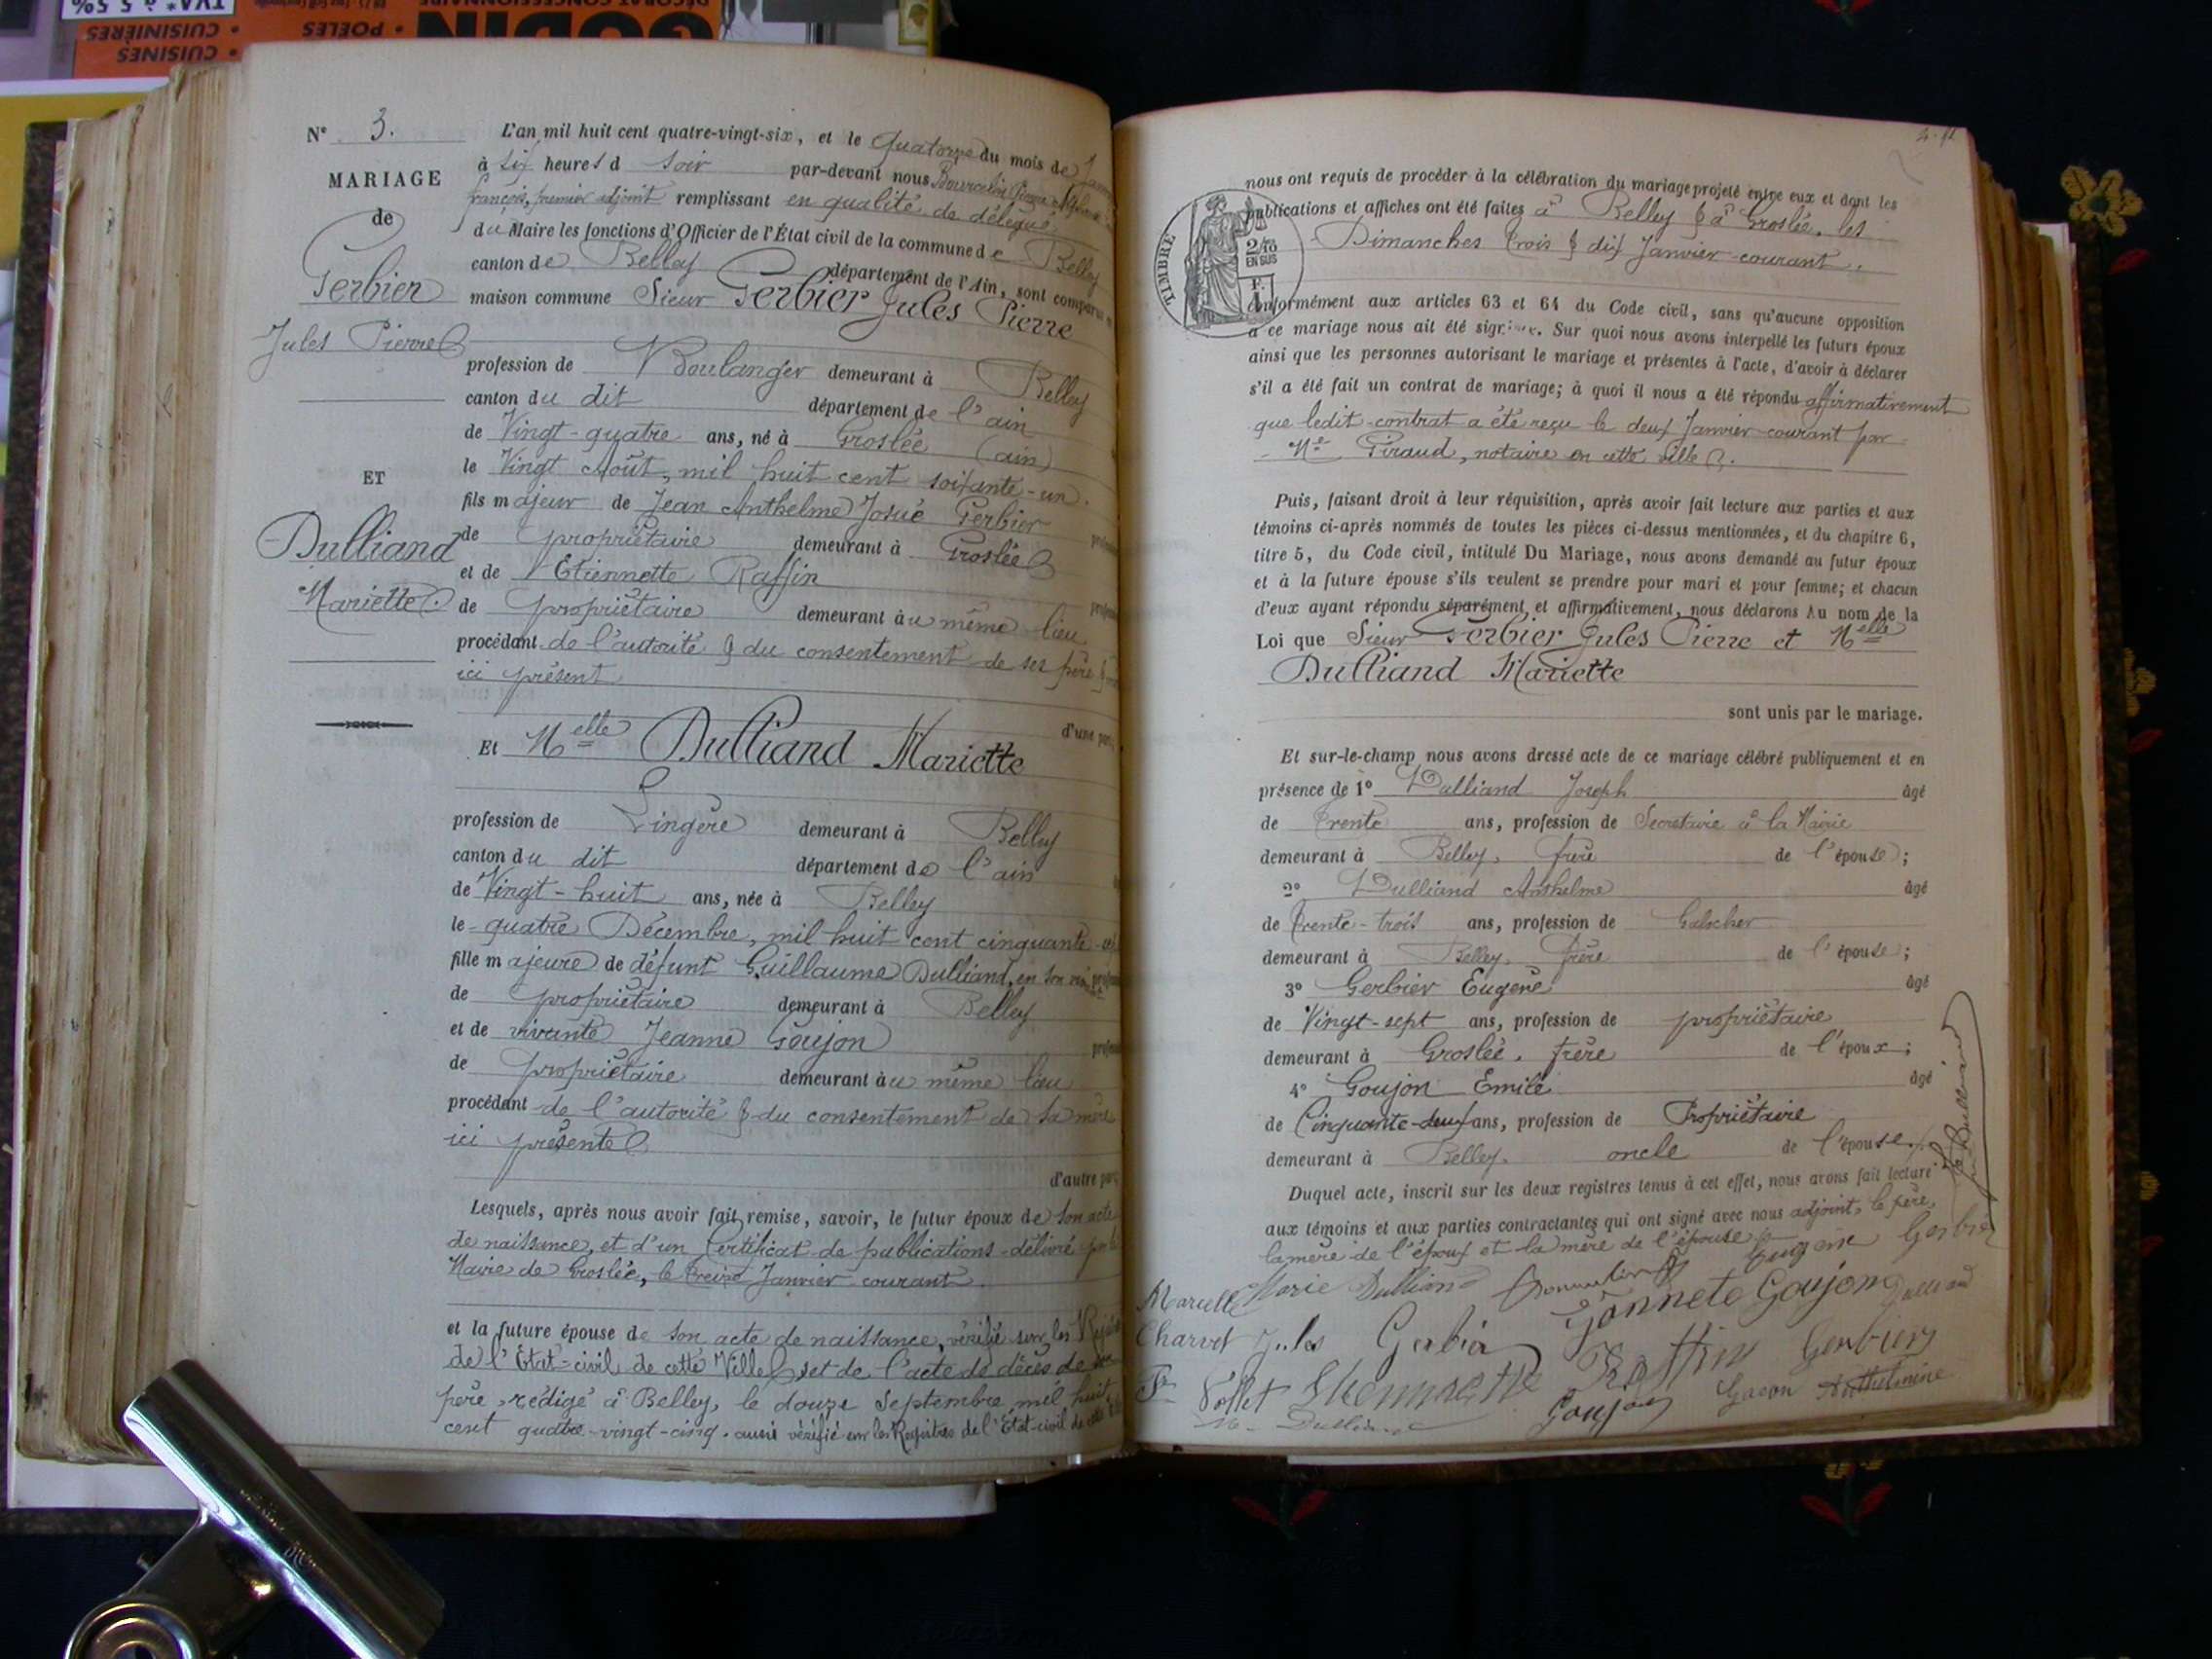 TVA* à 5,5%
• CUISINIÈRES
• CUISINES
• POÊLES
GODIN
N° 3.
MARIAGE
de
Gerbier
Jules Pierre
ET
Dulliand
Mariette
L'an mil huit cent quatre-vingt-six, et le quatorze du mois de
à six heures d soir par-devant nous
françois, premier adjoint remplissant en qualité de délégué
du Maire les fonctions d'Officier de l'État civil de la commune de Belley
canton de Belley département de l'Ain, sont comparus
maison commune Sieur Gerbier Jules Pierre
profession de Boulanger demeurant à Belley
canton du dit département de l'ain
de Vingt-quatre ans, né à Groslée (ain)
le Vingt Août, mil huit cent soixante-un.
fils majeur de Jean Anthelme Josué Gerbier
de propriétaire demeurant à Groslée
et de Etiennette Raffin
de propriétaire demeurant au même lieu
procédant de l'autorité & du consentement de ses père &
ici présent
d'une part
Et Melle Dulliand Mariette
profession de Lingère demeurant à Belley
canton du dit département de l'ain
de Vingt-huit ans, née à Belley
le quatre Décembre, mil huit cent cinquante
fille majeure de défunt Guillaume Dulliand, en son
de propriétaire demeurant à Belley
et de vivante Jeanne Goujon
de propriétaire demeurant au même lieu
procédant de l'autorité & du consentement de sa mère
ici présente
d'autre part
Lesquels, après nous avoir fait remise, savoir, le futur époux de son acte
de naissance, et d'un Certificat de publications délivré
Mairie de Groslée, le treize Janvier courant.
et la future épouse de son acte de naissance, vérifié sur les
de l'État-civil de cette Ville, et de l'acte de décès de
père, rédigé à Belley, le douze Septembre mil huit
cent quatre-vingt-cinq. aussi vérifié sur les Registres de l'État-civil de
nous ont requis de procéder à la célébration du mariage projeté entre eux et dont les
publications et affiches ont été faites à Belley & à Groslée, les
Dimanches trois & dix Janvier courant.
TIMBRE
2/10
EN SUS
conformément aux articles 63 et 64 du Code civil, sans qu'aucune opposition
à ce mariage nous ait été signifiée. Sur quoi nous avons interpellé les futurs époux
ainsi que les personnes autorisant le mariage et présentes à l'acte, d'avoir à déclarer
s'il a été fait un contrat de mariage; à quoi il nous a été répondu affirmativement
que ledit contrat a été reçu le deux Janvier courant par
Me Giraud, notaire en cette ville.
Puis, faisant droit à leur réquisition, après avoir fait lecture aux parties et aux
témoins ci-après nommés de toutes les pièces ci-dessus mentionnées, et du chapitre 6,
titre 5, du Code civil, intitulé Du Mariage, nous avons demandé au futur époux
et à la future épouse s'ils veulent se prendre pour mari et pour femme; et chacun
d'eux ayant répondu séparément et affirmativement, nous déclarons Au nom de la
Loi que Sieur Gerbier Jules Pierre et Melle
Dulliand Mariette
sont unis par le mariage.
Et sur-le-champ nous avons dressé acte de ce mariage célébré publiquement et en
présence de 1° Dulliand Joseph âgé
de trente ans, profession de Secrétaire à la Mairie
demeurant à Belley, frère de l'épouse;
2° Dulliand Anthelme âgé
de trente-trois ans, profession de Galocher
demeurant à Belley, frère de l'épouse;
3° Gerbier Eugène âgé
de Vingt-sept ans, profession de propriétaire
demeurant à Groslée, frère de l'époux;
4° Goujon Emile âgé
de Cinquante-deux ans, profession de Propriétaire
demeurant à Belley, oncle de l'épouse.
Duquel acte, inscrit sur les deux registres tenus à cet effet, nous avons fait lecture
aux témoins et aux parties contractantes qui ont signé avec nous adjoint, le père,
la mère de l'époux et la mère de l'épouse
Eugène Gerbier
Marcelle Marie Dulliand
Jonnete Goujon
Charvet Jules Gerbier
Raffin Gerbier
Vollet
Goujon
Gacon
M. Dulliand